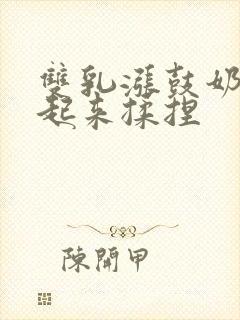 雙乳漲鼓奶
起來揉捏
陳開甲